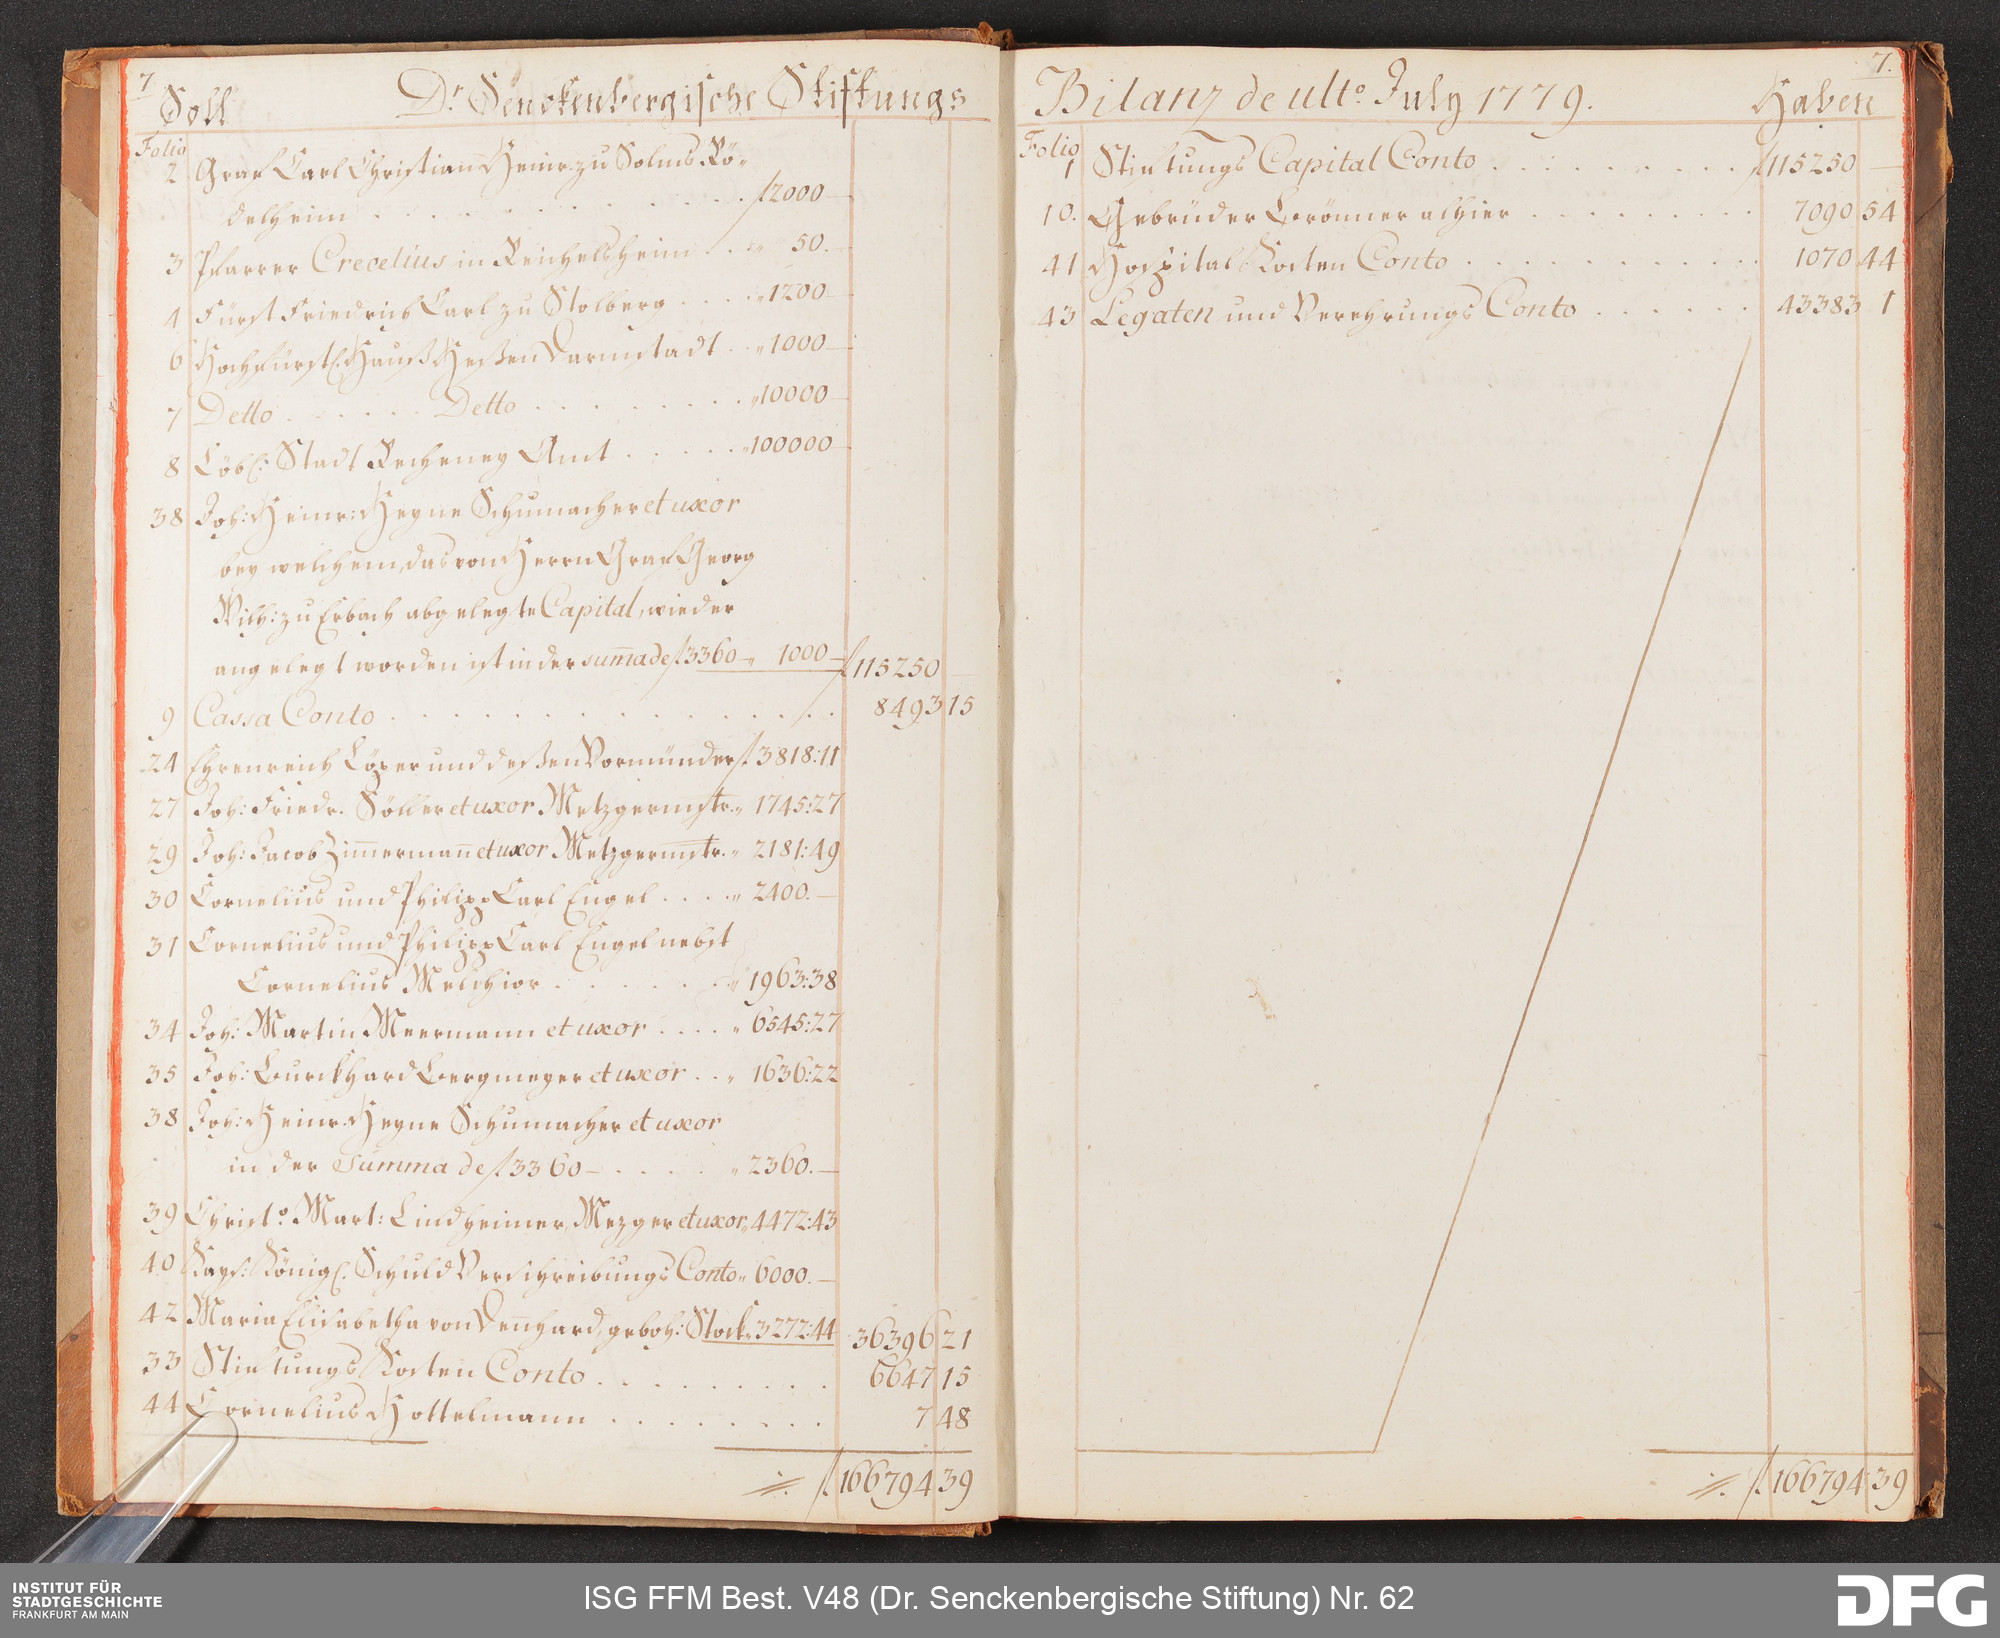 7.
Soll Dr. Senckenbergische Stiftungs
Folio
2 Graf Carl Christian Heinr. zu Solms Rö-
delheim . . . . . . . . . . f 2000 —
3 Pfarrer Crecelius in Reichelsheim . . „ 50. —
4 Fürst Friedrich Carl zu Stolberg . . . . „ 1200 —
6 Hochfürstl. Hauß Heßen Darmstadt . . „ 1000 —
7 Detto . . . . . . Detto . . . . . . . . „ 10000 —
8 Löbl: Stadt Recheney Amt . . . . . . „ 100000 —
38 Joh: Heinr: Heyne Schumacher et uxor
bey welchem, das von Herrn Graf Georg
Wilh: zu Erbach abgelegte Capital, wieder
angelegt worden ist in der summa de f 3360 — „ 1000 — f 115250 —
9 Cassa Conto . . . . . . . . . . . . 8493 15
24 Ehrenreich Löper und deßen Vormünder f 3818:11
27 Joh: Friedr. Söller et uxor Metzgermstr. „ 1745:27
29 Joh: Jacob Zimermañ et uxor Metzgermstr. „ 2181:49
30 Cornelius und Philipp Carl Engel . . . . „ 2400. —
31 Cornelius und Philipp Carl Engel nebst
Cornelius Melchior . . . . . . „ 1963:38
34 Joh: Martin Meermann et uxor . . . . „ 6545:27
35 Joh: Burckhard Bergmeyer et uxor . . „ 1636:22
38 Joh: Heinr. Heyne Schumacher et uxor
in der Summa de f 3360 — . . . . „ 2360. —
39 Christo. Mart: Lindheimer, Mezger et uxor „ 4472:43
40 Kays: Königl. Schuld Verschreibungs Conto „ 6000. —
42 Maria Elisabetha von Denhard, geboh: Stock „ 3272:44 36396 21
33 Stiftungs Kosten Conto . . . . . . . . 6647 15
44 Cornelius Hottelmann . . . . . . . . 7 48
f. 166794 39
7.
Bilanz de ulto. July 1779. Haben
Folio
1 Stiftungs Capital Conto . . . . . . . . f 115250 —
10. Gebrüder Brönner alhier . . . . . . . . 7090 54
41 Hospital Kosten Conto . . . . . . . . . 1070 44
43 Legaten und Verehrungs Conto . . . . . . 43383 1
f. 166794 39
INSTITUT FÜR
STADTGESCHICHTE
FRANKFURT AM MAIN
ISG FFM Best. V48 (Dr. Senckenbergische Stiftung) Nr. 62
DFG